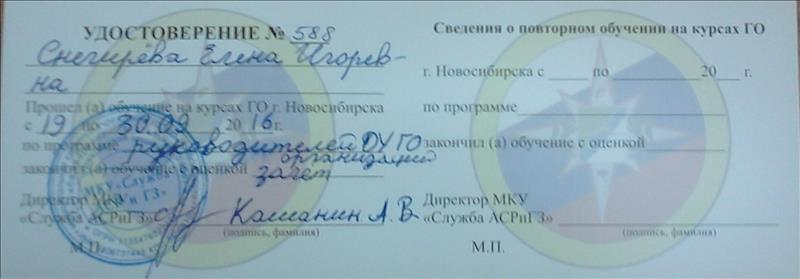 УДОСТОВЕРЕНИЕ № 588
Снегирёва Елена Игорев-
на
Прошел (а) обучение на курсах ГО г. Новосибирска
с 19 по 30.09 2016 г.
по программе руководителей ОУ ГО
организаций
закончил (а) обучение с оценкой зачет
Директор МКУ
«Служба АСРиГЗ» Кашанин А. В
(подпись, фамилия)
М.П.
Сведения о повторном обучении на курсах ГО
г. Новосибирска с по 20 г.
по программе
закончил (а) обучение с оценкой
Директор МКУ
«Служба АСРиГЗ»
(подпись, фамилия)
М.П.